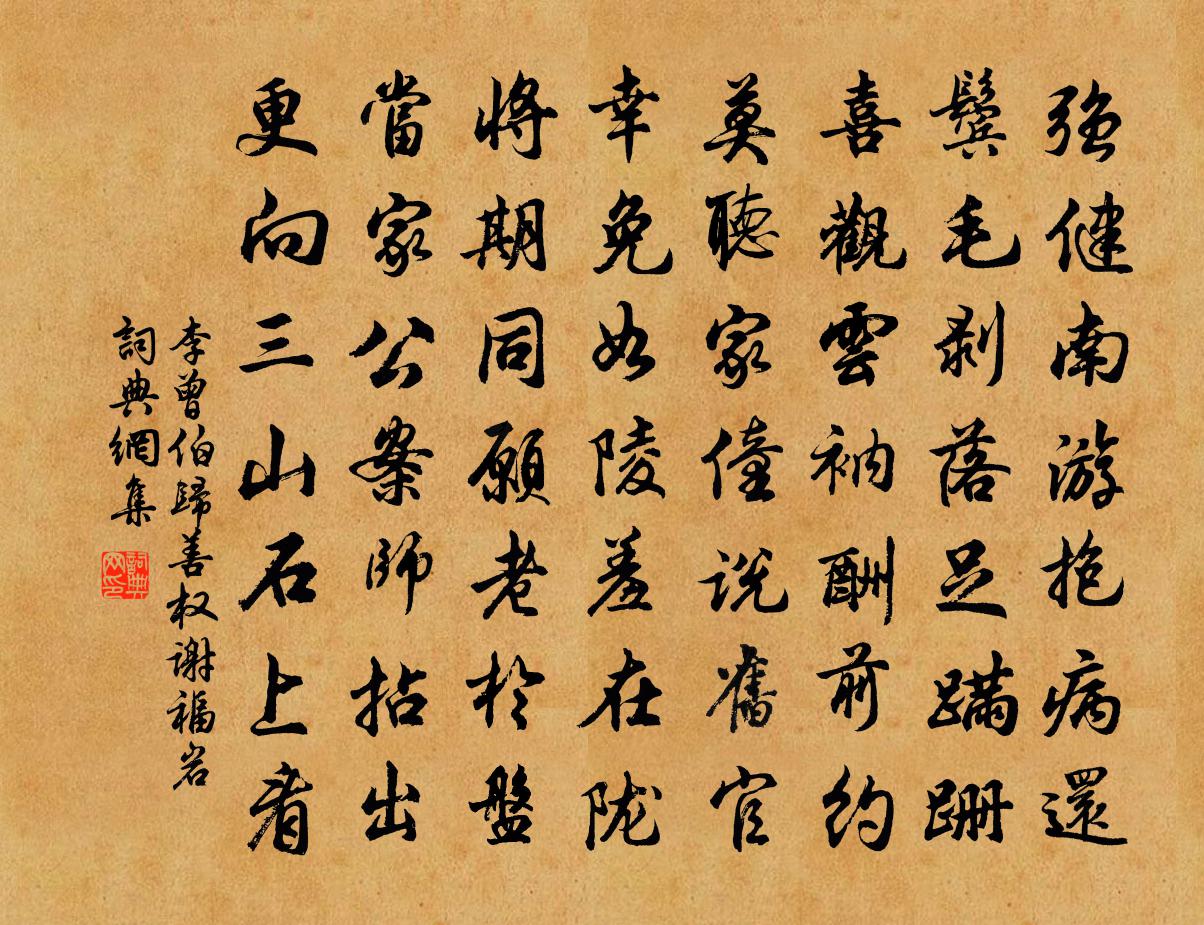 强健南游抱病還
鬢毛剝落足蹣跚
喜觀雲衲酬前約
莫聽家僮說舊官
幸免如陵羞在陇
將期同願老於盤
當家公案師拈出
更向三山石上看
李曾伯歸善权谢福岩
詞典網集
詞典網印